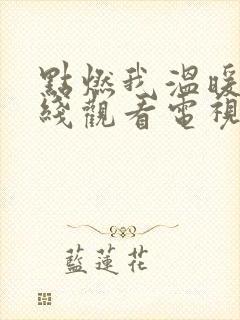 點燃我溫暖
綫觀看電視
藍蓮花